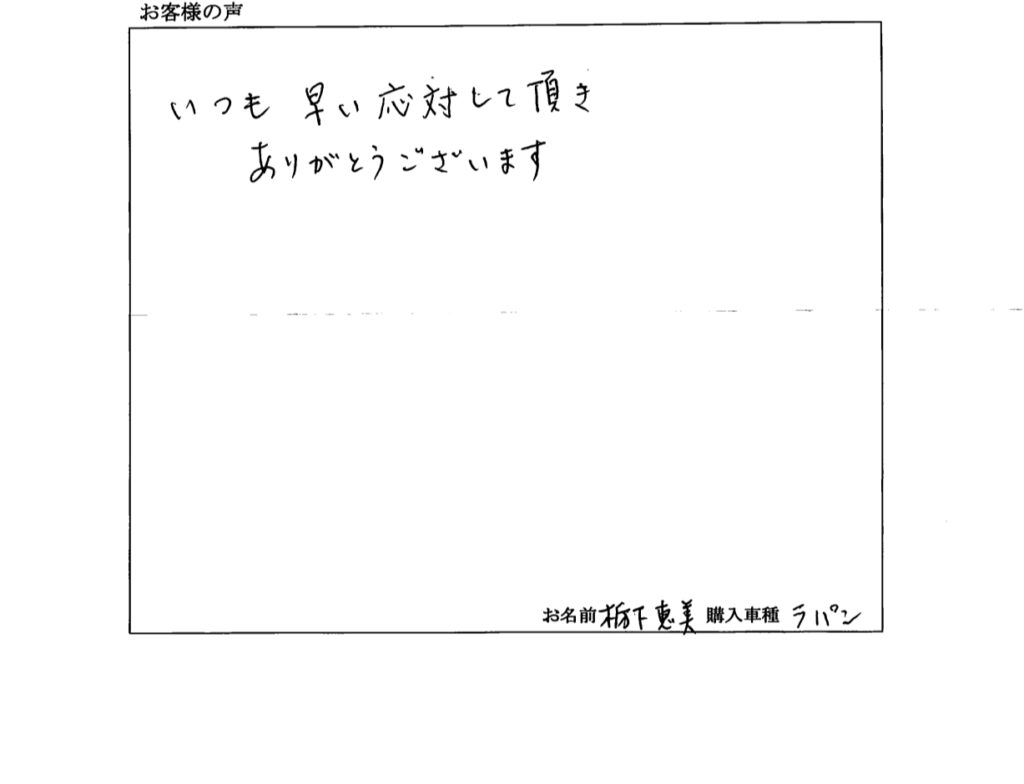 お客様の声
いつも 早い応対して頂き
ありがとうございます
お名前 栃下 恵美 購入車種 ラパン